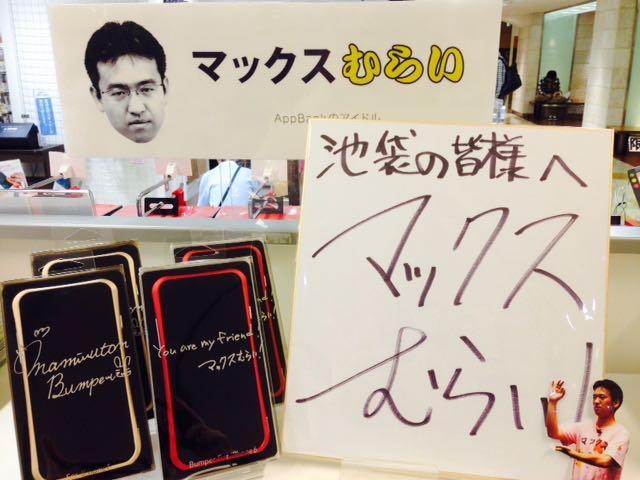 マックスむらい
AppBankのアイドル
池袋の皆様へ
マックス
むらい!
Bumper
You are my friend.
マックスむらい!
Bumper For iPhone6
マックス